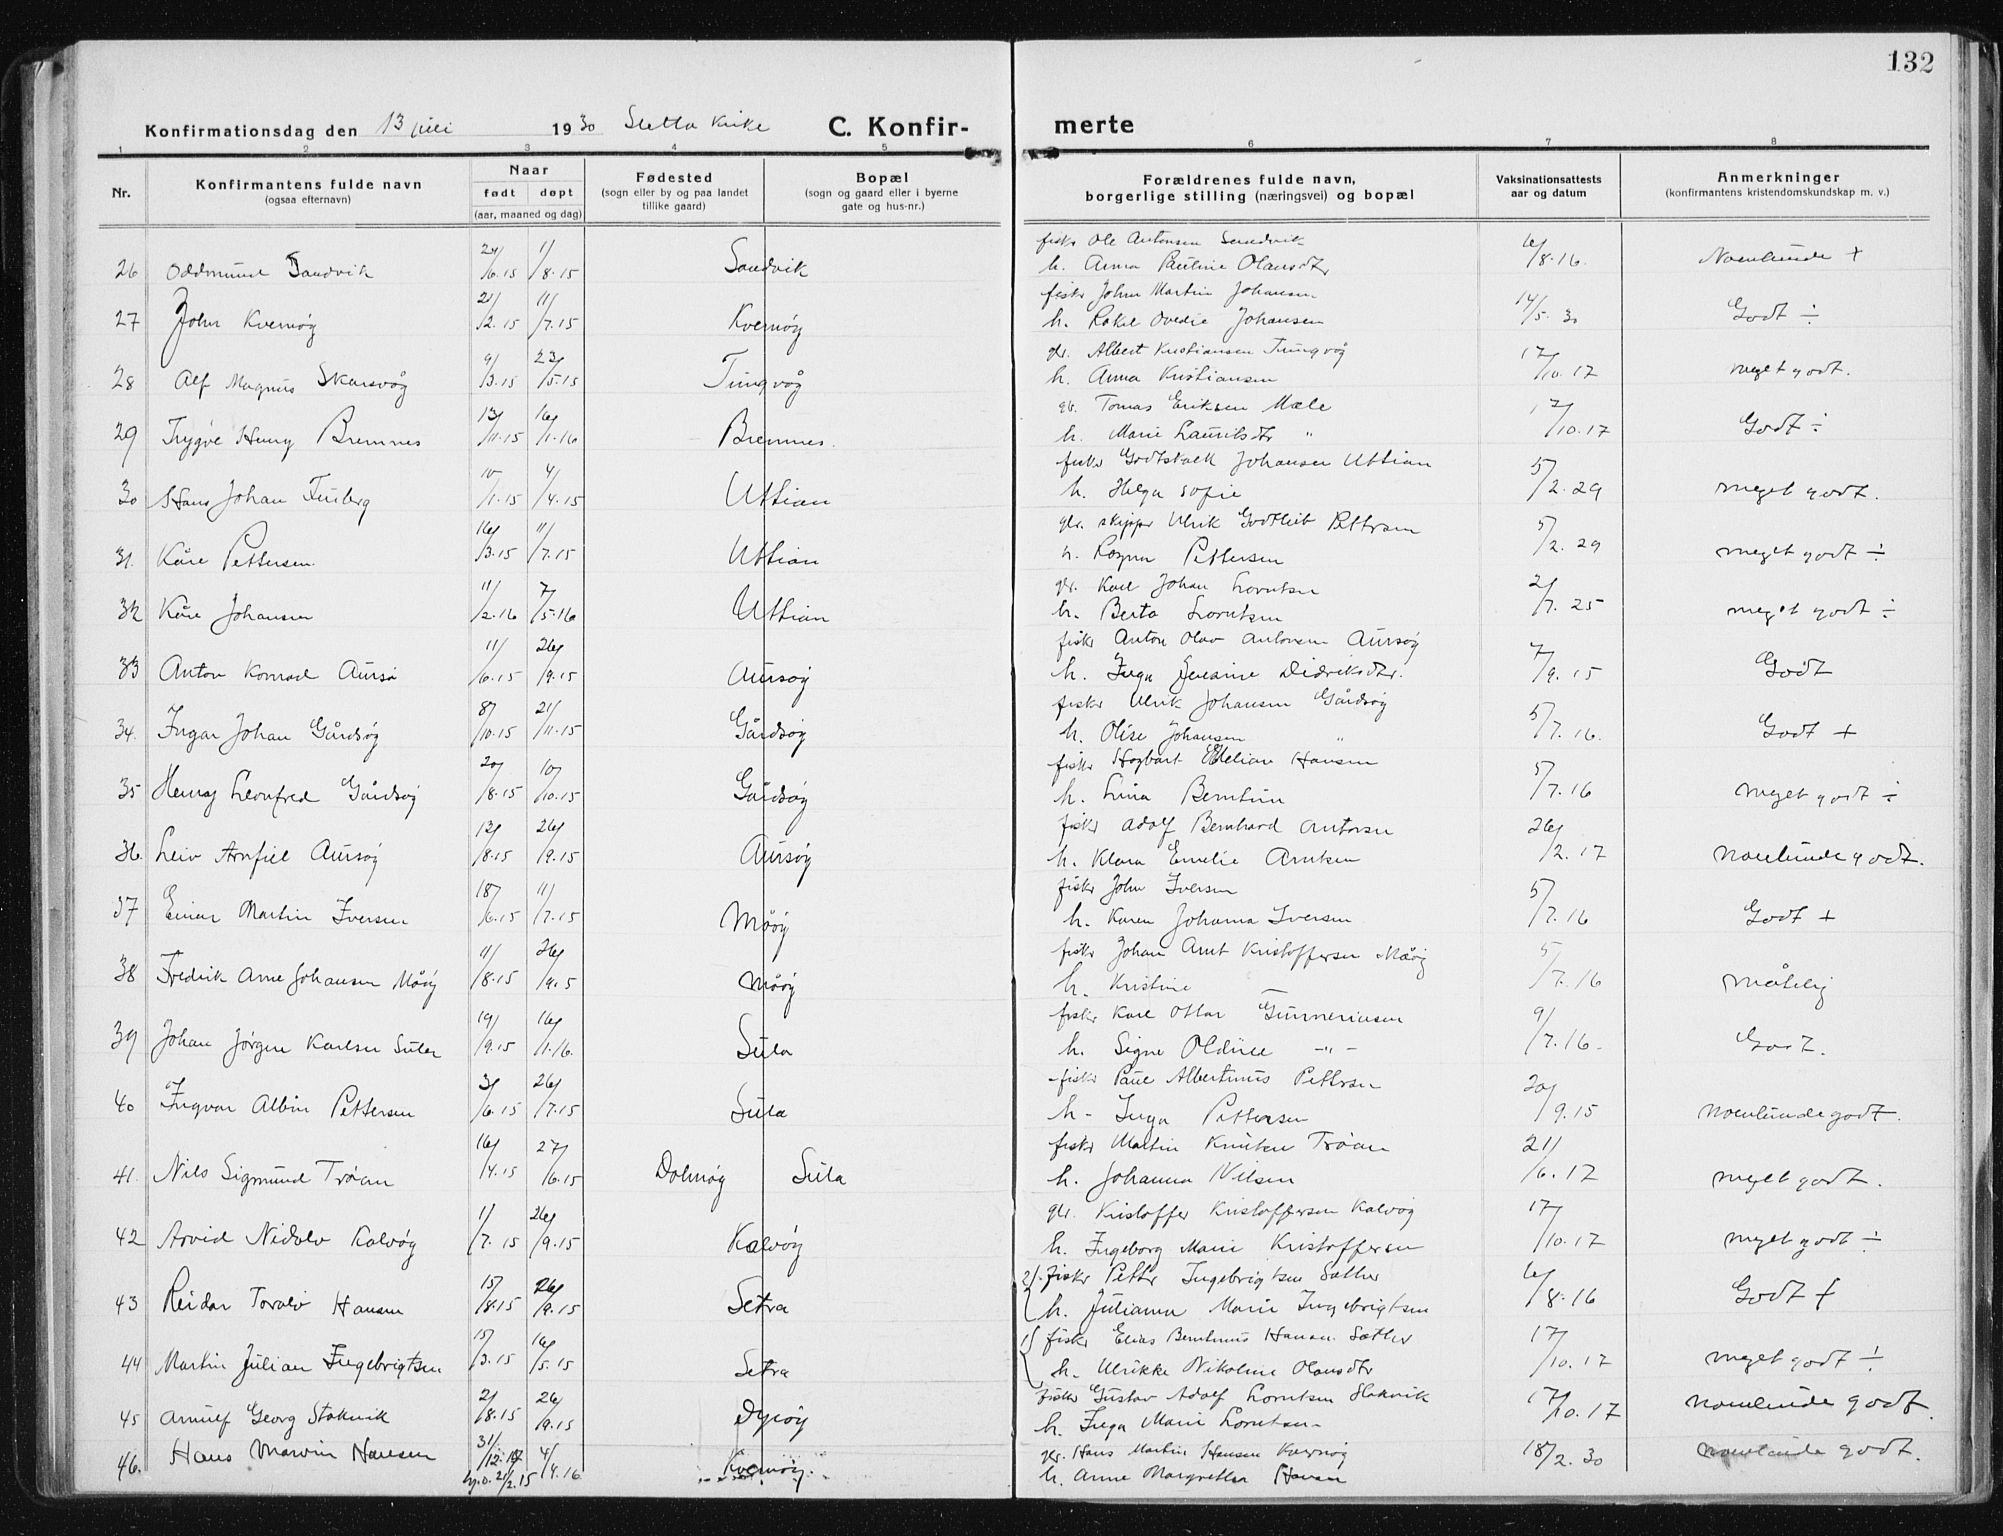 132
Konfirmationsdag den 13 juli 1930 Sletta Kirke C. Konfir-
merte
1 2 3 4 5 6 7 8
Nr.
Konfirmantens fulde navn
(ogsaa efternavn)
Naar
født døpt
(aar, maaned og dag)
Fødested
(sogn eller by og paa landet
tillike gaard)
Bopæl
(sogn og gaard eller i byerne
gate og hus-nr.)
Forældrenes fulde navn,
borgerlige stilling (næringsvei) og bopæl
Vaksinationsattests
aar og datum
Anmerkninger
(konfirmantens kristendomskundskap m. v.)
fisker Ole Antonsen Sandvik
26 Oddmund Sandvik 24/6.15 1/8.15 Sandvik h. Anna Pauline Olausdtr 6/8.16. Noenlunde +
fisker John Martin Johansen
27 John Kvernøy 21/2.15 11/7.15 Kvernøy h. Rakel Ovedie Johansen 14/5.30 Godt ÷
gbr. Albert Kristiansen Tungvåg
28 Alf Magnus Skarsvåg 9/3.15 23/5.15 Tungvåg h. Anna Kristiansen 17/10.17 meget godt.
gb. Tomas Eriksen Mæle
29 Trygve Henry Bremnes 13/11.15 16/1.16 Bremnes. h. Marie Lauritsdtr " 17/10.17 Godt ÷
fisker Godtskalk Johansen Uttian
30 Hans Johan Fuglberg 10/1.15 4/4.15 Uttian h. Helga Sofie 5/2.29 meget godt.
gbr. skipper Ulrik Godtlieb Pettersen
31. Kåre Pettersen. 16/3.15 11/7.15 Uttian h. Ragna Pettersen 5/2.29 meget godt ÷
gbr. Karl Johan Lorntsen
32 Kåre Johansen 11/2.16 7/5.16 Uttian h. Berta Lorntsen 2/7.25 meget godt ÷
fisker Anton Olav Antonsen Aursøy
33 Anton Konrad Aursø 11/6.15 26/9.15 Aursøy h. Inga Jensine Didriksdtr. 7/9.15 Godt
fisker Ulrik Johansen Gårdsøy
34. Ingar Johan Gårdsøy 8/10.15 21/11.15 Gårdsøy h. Olise Johansen " 5/7.16. Godt +
fisker Hagbart Edelian Hansen
35 Henry Leonfred Gårdsøy 20/8.15 10/10.15 Gårdsøy h. Lina Berntine 5/7.16 meget godt ÷
fisker Adolf Bernhard Antonsen
36. Leiv Arnfiel Aursøy 12/8.15 26/9.15 Aursøy h. Klara Emelie Arntsen 26/2.17 noenlunde godt.
fisker John Iversen
37 Einar Martin Iversen 18/6.15 11/7.15 Måøy h. Karen Johanna Iversen 5/7.16 Godt +
fisker Johan Arnt Kristoffersen Måøy
38 Fredrik Arne Johansen Måøy 11/8.15 26/9.5 Måøy h. Kristine 5/7.16 måtelig
fisker Karl Ottar Gunneriusen
39 Johan Jørgen Karlsen Sula 19/9.15 16/1.16. Sula h. Signe Oldine -"- 9/7.16. Godt.
fisker Paul Albertinus Pettersen
40 Ingvar Albin Pettersen 3/6.15 26/7.15 Sula h. Inga Pettersen 20/9.15 noenlunde godt.
fisker Martin Knutsen Trøan
41. Nils Sigmund Trøan 16/4.15 27/6.15 Dolmøy Sula h. Johanna Nilsen 21/6.17 meget godt.
gbr. Kristoffer Kristoffersen Kalvøy
42 Arvid Nidolv Kalvøy 1/7.15 26/9.15 Kalvøy h. Ingeborg Marie Kristoffersen 17/10.17 meget godt ÷
2). fisker Petter Ingebrigtsen Sæther
43 Reidar Toralv Hansen 15/8.15 26/9.15 Setra h. Julianna Marie Ingebrigtsen 6/8.16 Godt +
1) fisker Elias Berntinus Hansen Sæther
44 Martin Julian Ingebrigtsen 15/3.15 16/5.15 Setra h. Ulrikke Nikoline Olausdtr 17/10.17 meget godt ÷
fisker Gustav Adolf Lorntsen Stokvik
45 Arnulf Georg Stokvik 2/8.15 26/9.15 Dyrøy h. Inga Marie Lorntsen 17/10.17 noenlunde godt.
gbr. Hans Martin Hansen Kvernøy
46. Hans Marvin Hansen 31/12. 4/4.16 Kvernøy. h. Anne Margrethe Hansen 18/2.30 noenlunde godt.
21/2.15